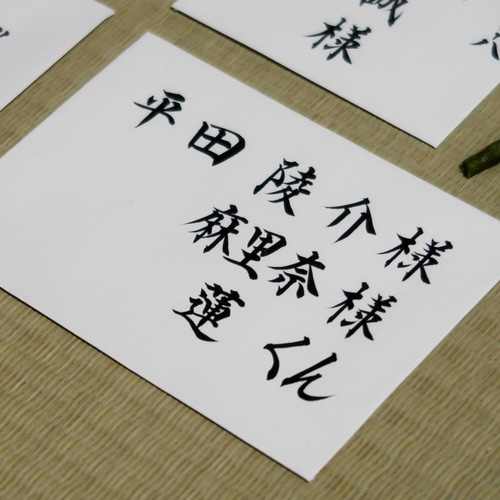 誠
様
平田 陵介様
麻里奈様
蓮くん